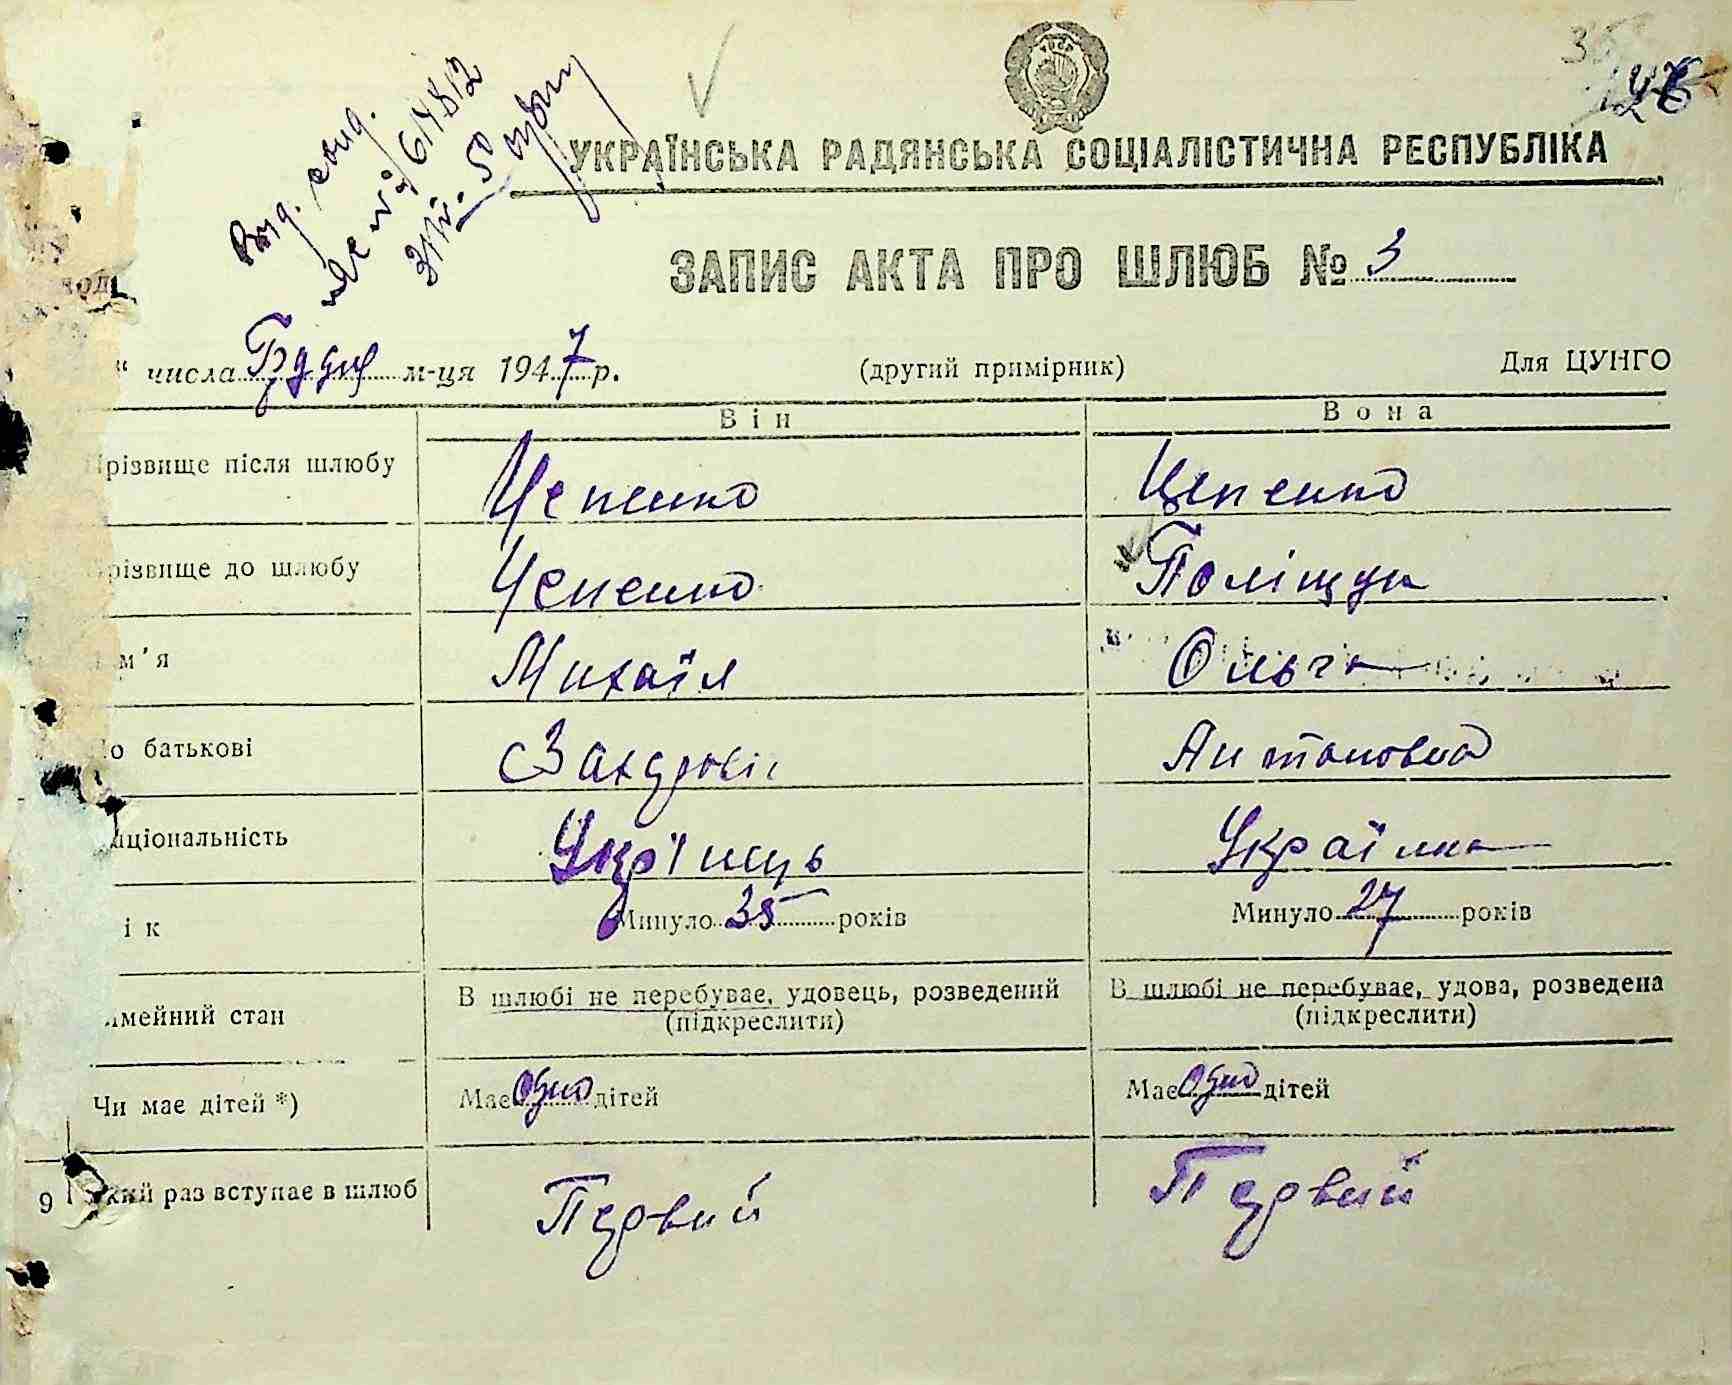 УКРАЇНСЬКА РАДЯНСЬКА СОЦІАЛІСТИЧНА РЕСПУБЛІКА
ЗАПИС АКТА ПРО ШЛЮБ № 3
" числа Грудня м-ця 1947 р. (другий примірник) Для ЦУНГО
Він Вона
різвище після шлюбу Цепенко Цепенко
різвище до шлюбу Цепенко Поліщук
м'я Михаїл Ольга
о батькові Захарович Антоновна
аціональність Укрїнець Українка
ік Минуло 35 років Минуло 27 років
імейний стан В шлюбі не перебуває, удовець, розведений В шлюбі не перебуває, удова, розведена
(підкреслити) (підкреслити)
Чи має дітей *) Має одно дітей Має одно дітей
9 кий раз вступає в шлюб Первий Первий